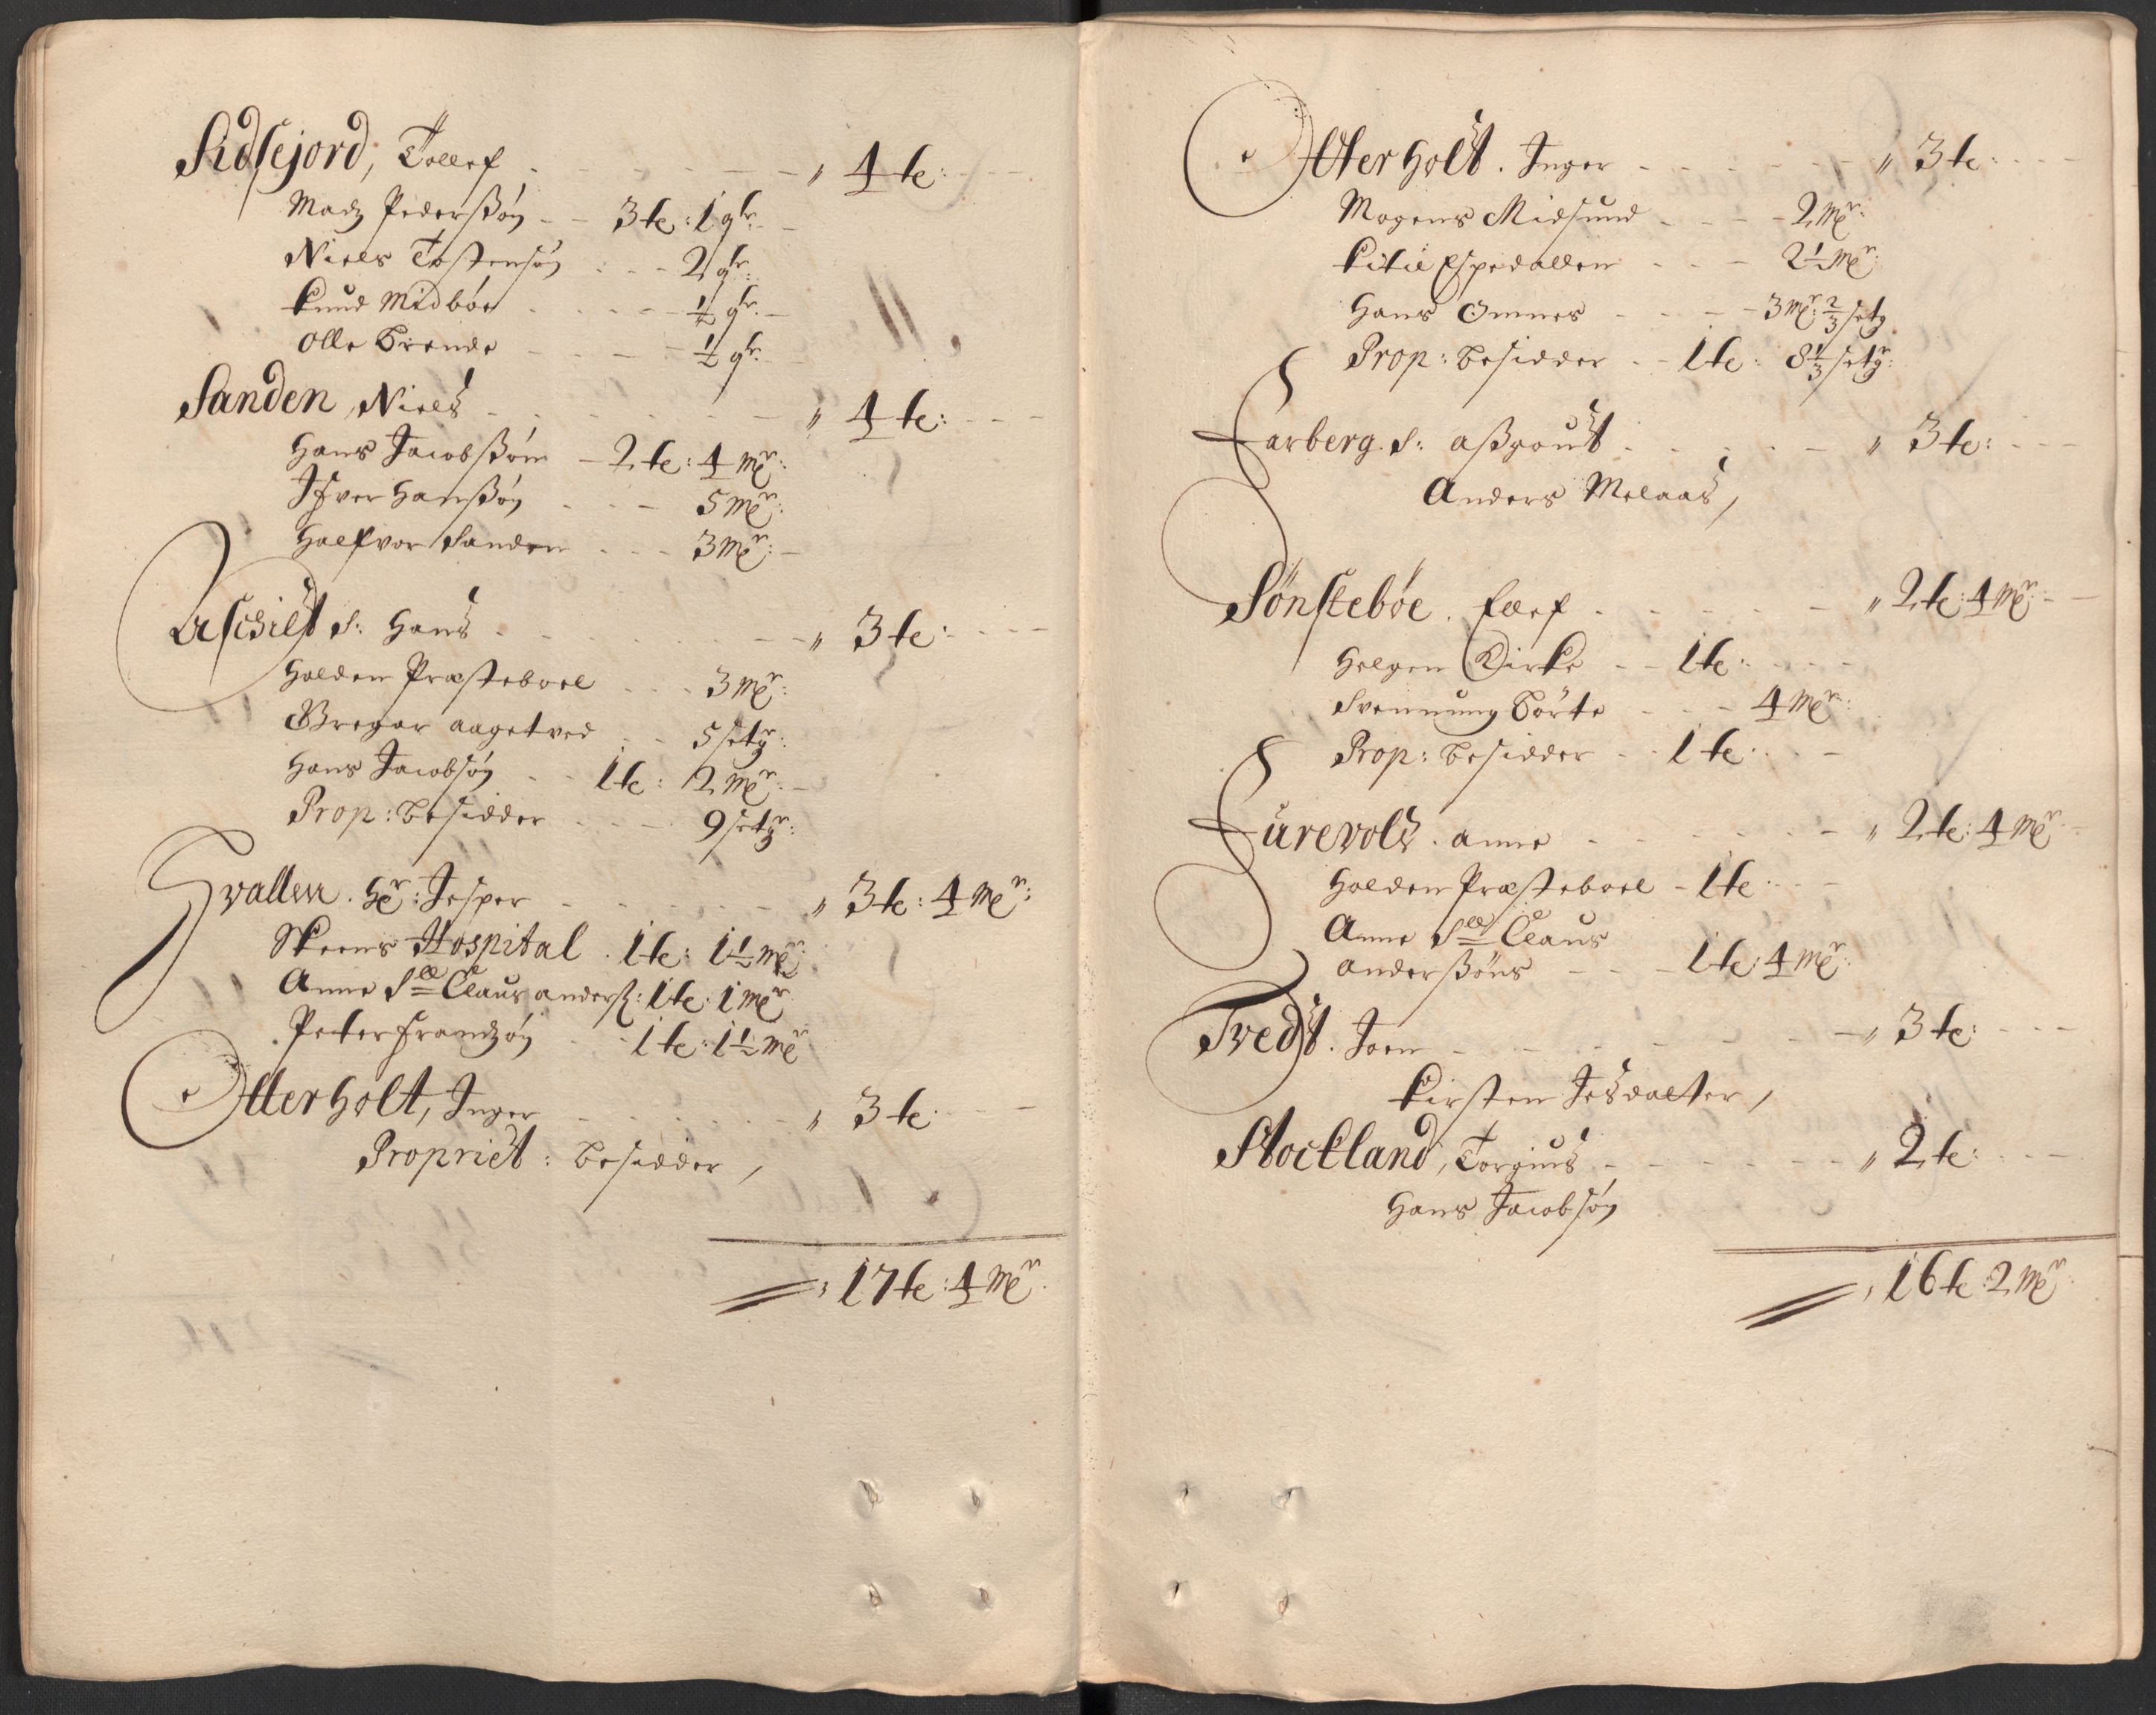 Kidsejord, Tollef - - - - - - " 4 te: - - -
Madz Pederßøn - - 3 te: 1 qr: -
Niels Tostensøn : - - 2 qr:
Knud Midbøe - - - - ½ qr: -
Olle Brende - - - - ½ qr: -
Sanden, Niels - - - - - - " 4 te: - - -
Hans Jacobßøn - 2 te: 4 mꝭr:
Ifver Hanßøn - - - 5 mꝭr:
Halfvor Sanden - - - 3 mꝭr: -
Aschilt S: Hans - - - - - - " 3 te: - - -
Holden Præsteboel - - - 3 mꝭr:
Gregar Aagetved - - 5 setgr:
Hans Jacobsøn - - 1 te: 2 mꝭr: -
Prop: besidder - - - 9 setgr:
Hvallen. Hr: Jesper - - - - - " 3 te: 4 mꝭr:
Skeens Hospital. 1 te: 1½ mꝭr:
Anne Sll Claus anderß: 1 te: 1 mꝭr
Peter Frandzøn - - 1 te: 1½ mꝭr
Otterholt, Inger - - - - - - " 3 te - - -
Propriet: besidder,
17 te: 4 mꝭr.
Otterholt. Inger - - - - - - " 3 te: - - -
Mogens Midsund - - - - 2 mꝭr:
Kitil Espedallen - - - 2½ mꝭr:
Hans Omnes - - - - 3 mꝭr: ⅔ setg
Prop: besidder - - 1 te: 8⅓ setgr:
Farberg. S: Aßgout - - - - - " 3 te: - - -
Anders Melaas,
Sønstebøe. Leef - - - - - - " 2 te: 4 mꝭr: - -
Helgen Kirke - - 1 te: - - -
Svennung Børte - - - 4 mꝭr:
Prop: besidder - - 1 te: - - -
Furevold. Anne - - - - - - " 2 te: 4 mꝭr: -
Holden Præsteboel - 1 te: - -
Anne Sll Claus
Anderßøns - - - 1 te: 4 mꝭr:
Tvedt. Joen - - - - - - - " 3 te: - - -
Kirsten Jesdatter,
Stockland, Torgius - - - - - - " 2 te: - - -
Hans Jacobsøn
16 te: 2 mꝭr: